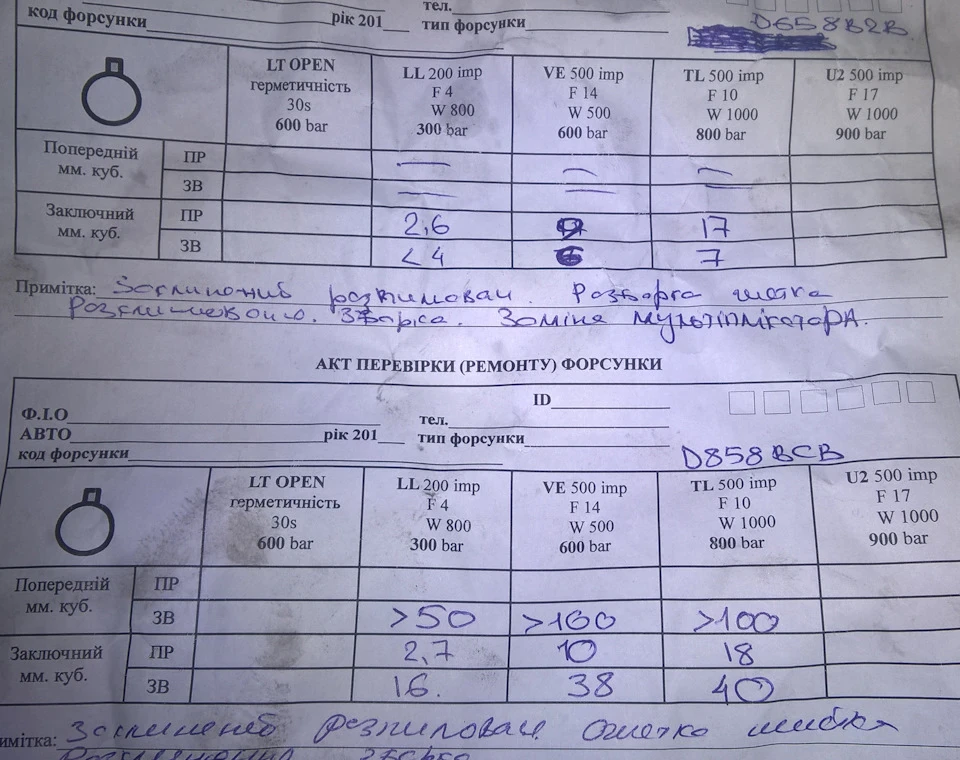 тел.
код форсунки рік 201 тип форсунки D658B2B
LT OPEN герметичність 30s 600 bar
LL 200 imp F 4 W 800 300 bar
VE 500 imp F 14 W 500 600 bar
TL 500 imp F 10 W 1000 800 bar
U2 500 imp F 17 W 1000 900 bar
Попередній мм. куб. ПР — — —
ЗВ — — —
Заключний мм. куб. ПР 2,6 17
ЗВ <4 7
Примітка:
Заміна мультіплікатора.
АКТ ПЕРЕВІРКИ (РЕМОНТУ) ФОРСУНКИ
ID
Ф.І.О тел.
АВТО рік 201 тип форсунки
код форсунки D858BCB
LT OPEN герметичність 30s 600 bar
LL 200 imp F 4 W 800 300 bar
VE 500 imp F 14 W 500 600 bar
TL 500 imp F 10 W 1000 800 bar
U2 500 imp F 17 W 1000 900 bar
Попередній мм. куб. ПР
ЗВ >50 >100 >100
Заключний мм. куб. ПР 2,7 10 18
ЗВ 16. 38 40
имітка: